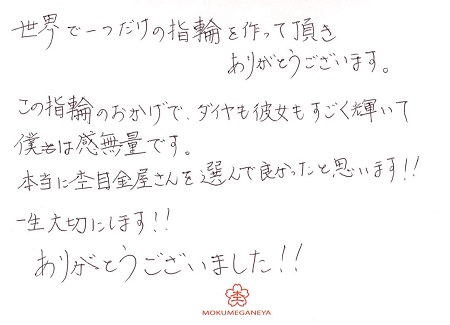 世界で一つだけの指輪を作って頂き
ありがとうございます。
この指輪のおかげで、ダイヤも彼女もすごく輝いて
僕は感無量です。
本当に杢目金屋さんを選んで良かったと思います!!
一生大切にします!!
ありがとうございました!!
杢
MOKUMEGANEYA